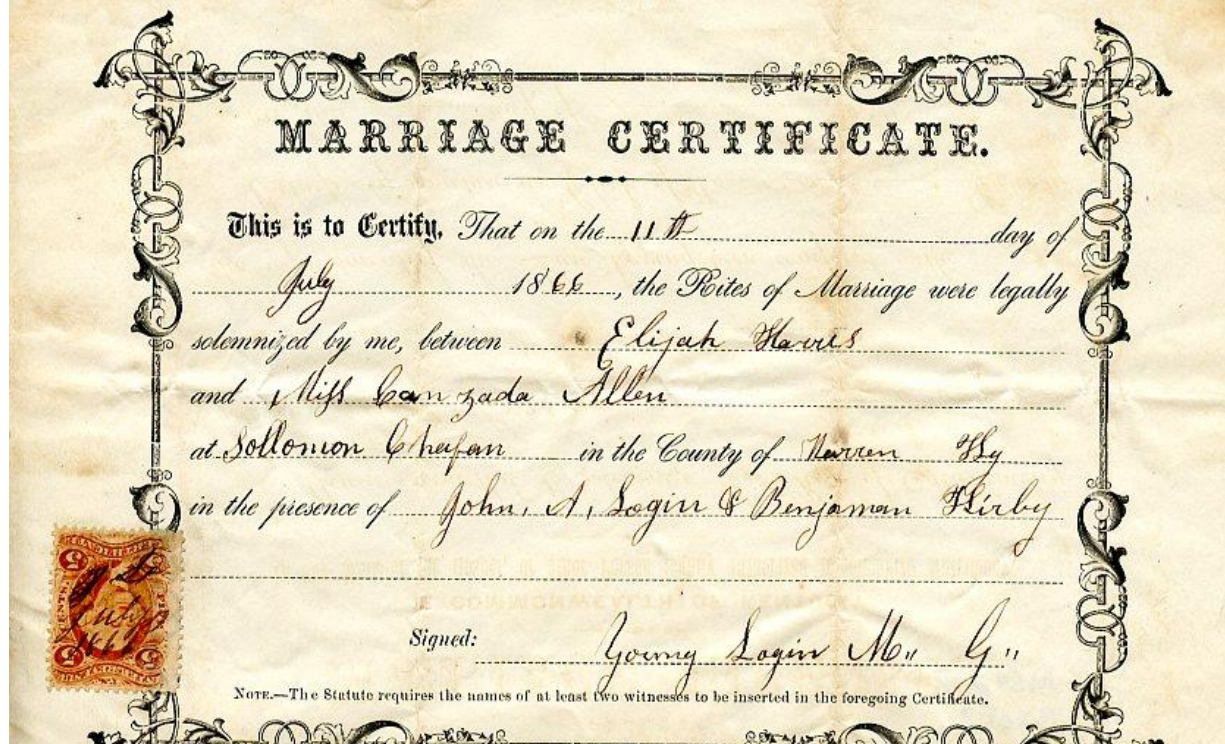 MARRIAGE CERTIFICATE.
This is to Certify, That on the 11th day of
July 1866, the Rites of Marriage were legally
solemnized by me, between Elijah Harris
and Miss Canzada Allen
at Sollomon Chafan in the County of Warren Ky
in the presence of John, A, Login & Benjaman Kirby
Signed: Young Login M,, G,,
NOTE.—The Statute requires the names of at least two witnesses to be inserted in the foregoing Certificate.
5
5
CENTS.
July
1866
5
5